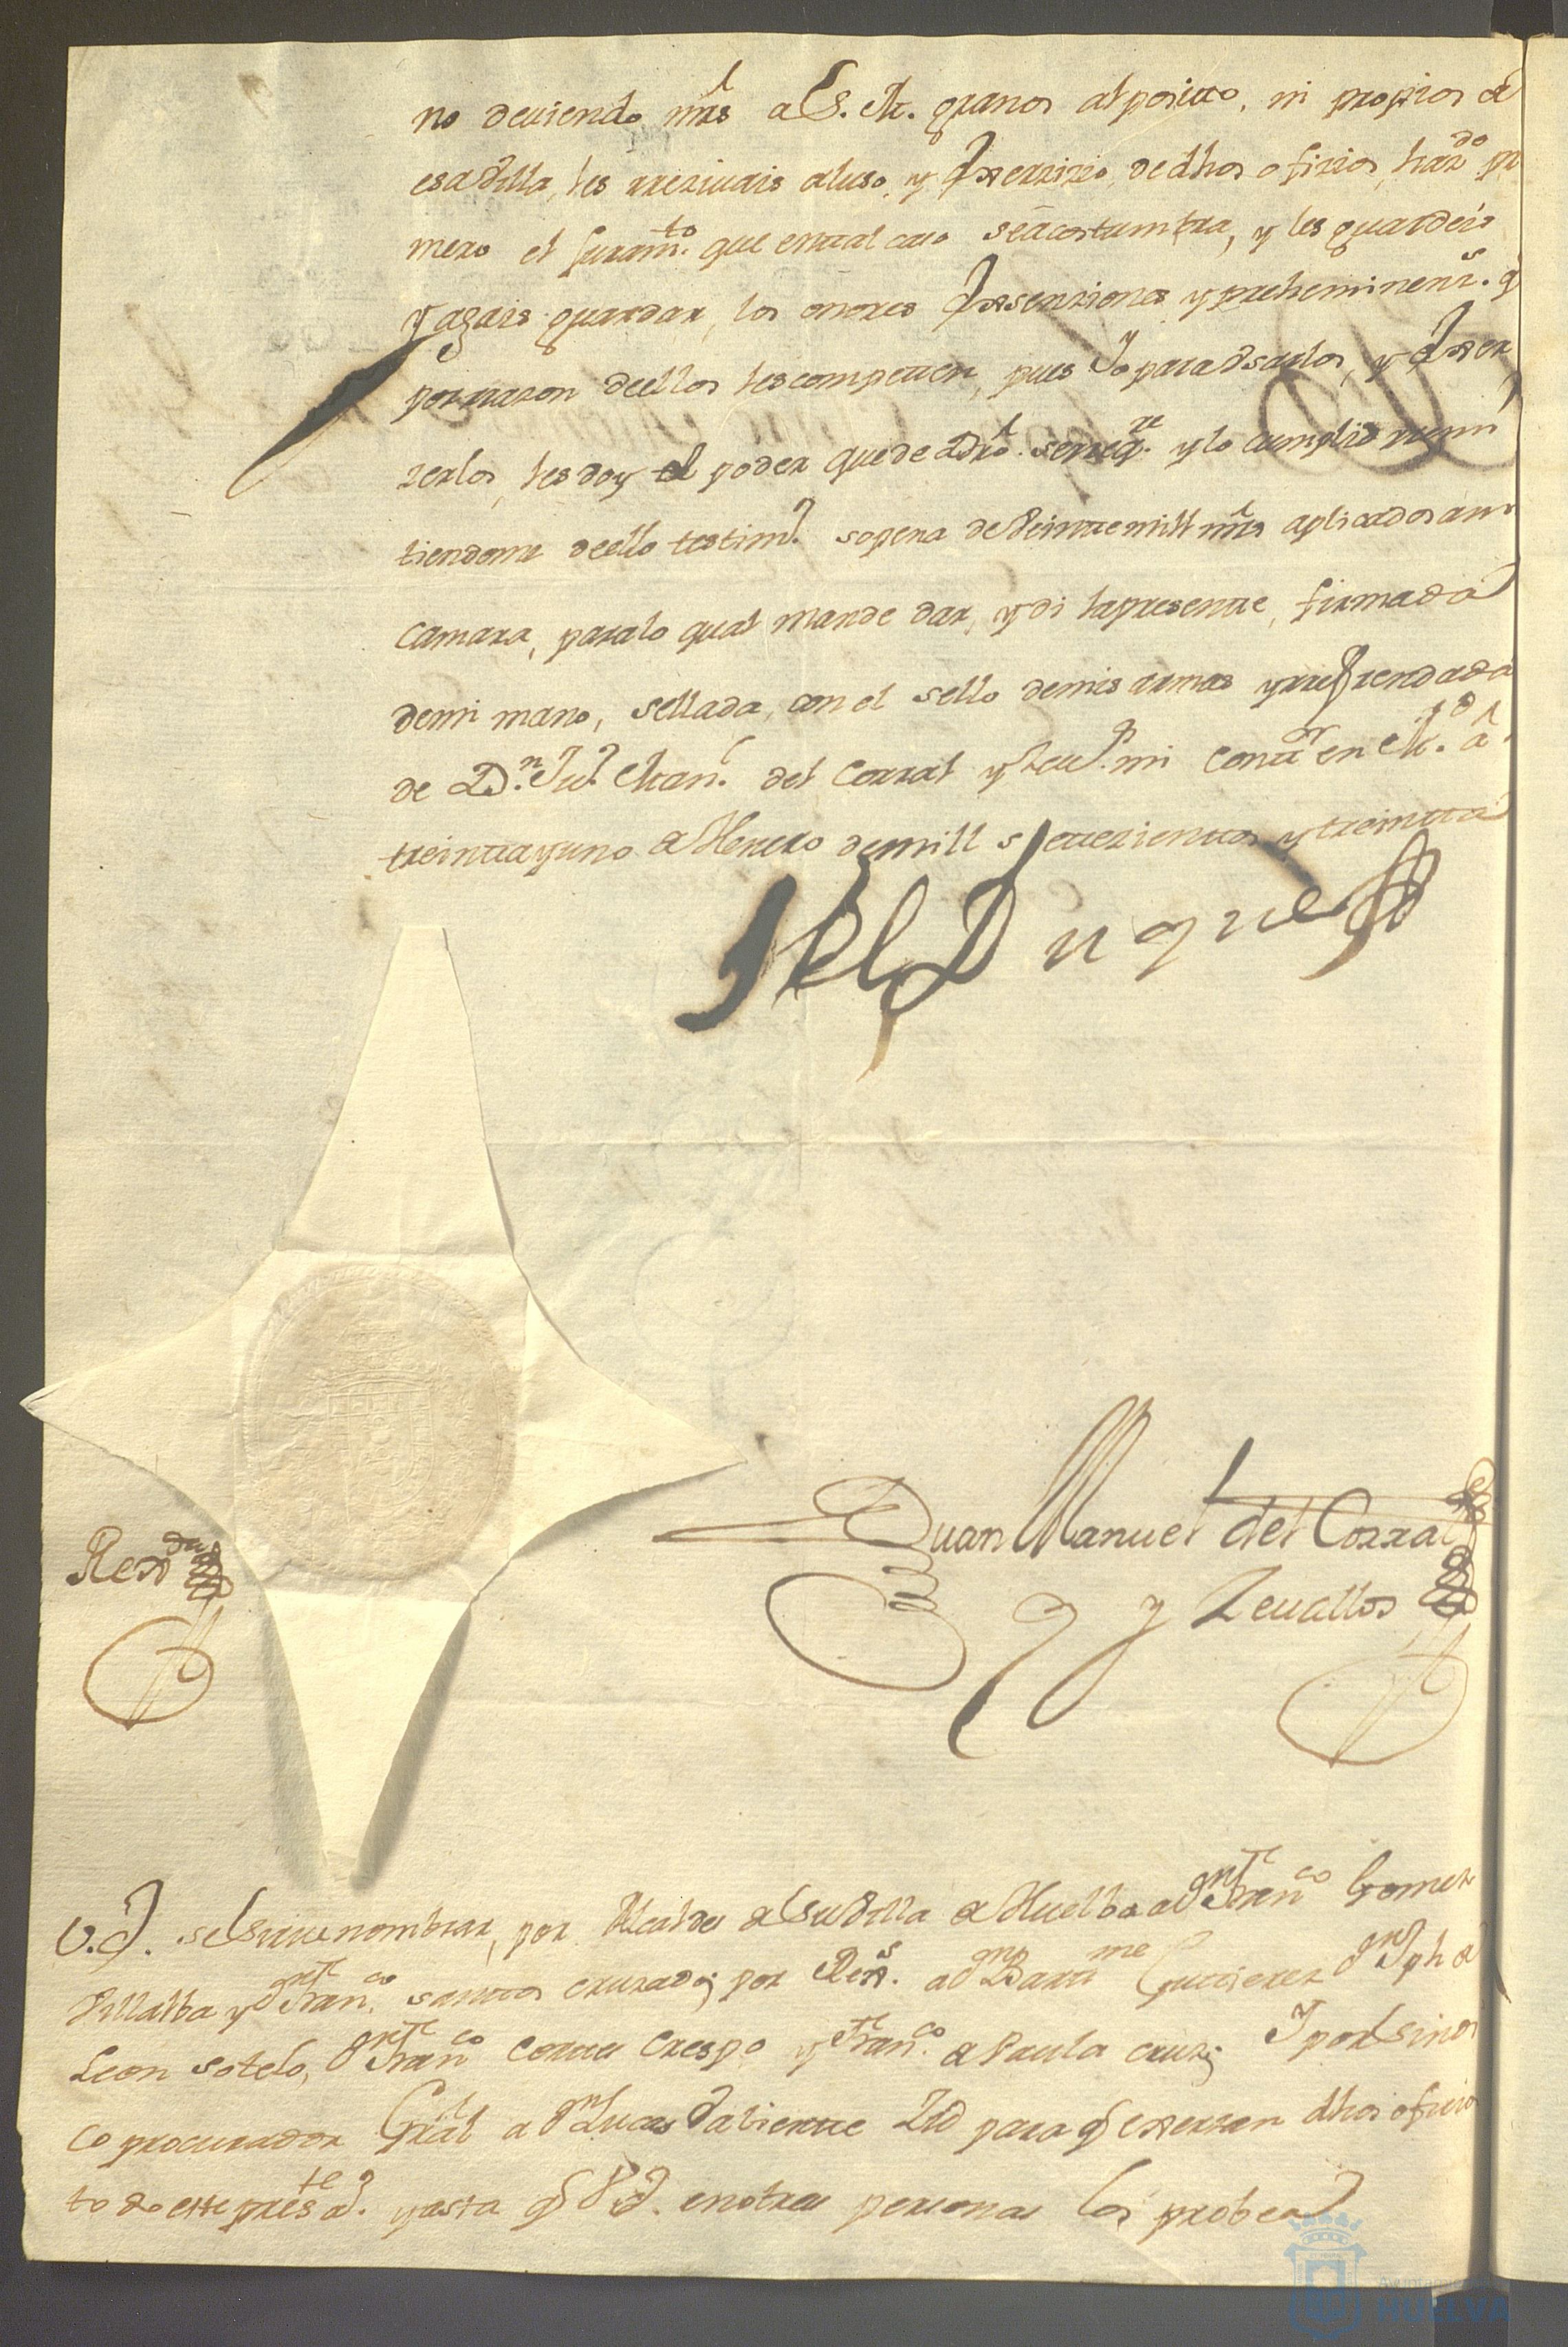 no deuiendo mrs a S. M. granos al posito, ni propios de
esa Villa, les rreziuais al uso, y Exerzizio, de dhos ofizios, hazdo pri
mero el Juramto. que en tal caso se acostumbra, y les guardeis
y agais guardar, los onores Exsenziones y preheminens. q
por rrazon dellos les competten, pues Yo para Vsarlos, y Exer
zerlos, les doy el poder que de Dro. se rreqre. y lo cumplid rremi
tiendome dello testimo. so pena de Veintte mill mrs aplicados a mi
Camara, para lo qual mande dar, y di la presentte, firmada
de mi mano, sellada, con el sello de mis armas y rrefrendada
de Dn. Jun. Man. del Corral y Zeus. mi Contor en Md. a
treintta y uno de Henero de mill settezientos y treintta
El Duque
Juan Manuel del Corral
y Zeuallos
Rexda
V. E. se sirue nombrar, por Alcaldes de su Villa de Huelba a Dn Franco Gomez
Villalba y Dn Franco. santtos cruzado; por Rexs. a Dn Barttme Gutierrez Dn Jph de
Leon sotelo, Dn Franco Cortes Crespo y Franco. de Paula cruz; Y por Sindi
co procurador Gral a Dn Lucas Valientte Zid para q exerzan dhos ofizios
todo este preste a. y asta q V E. en otras personas los probea
HUELVA